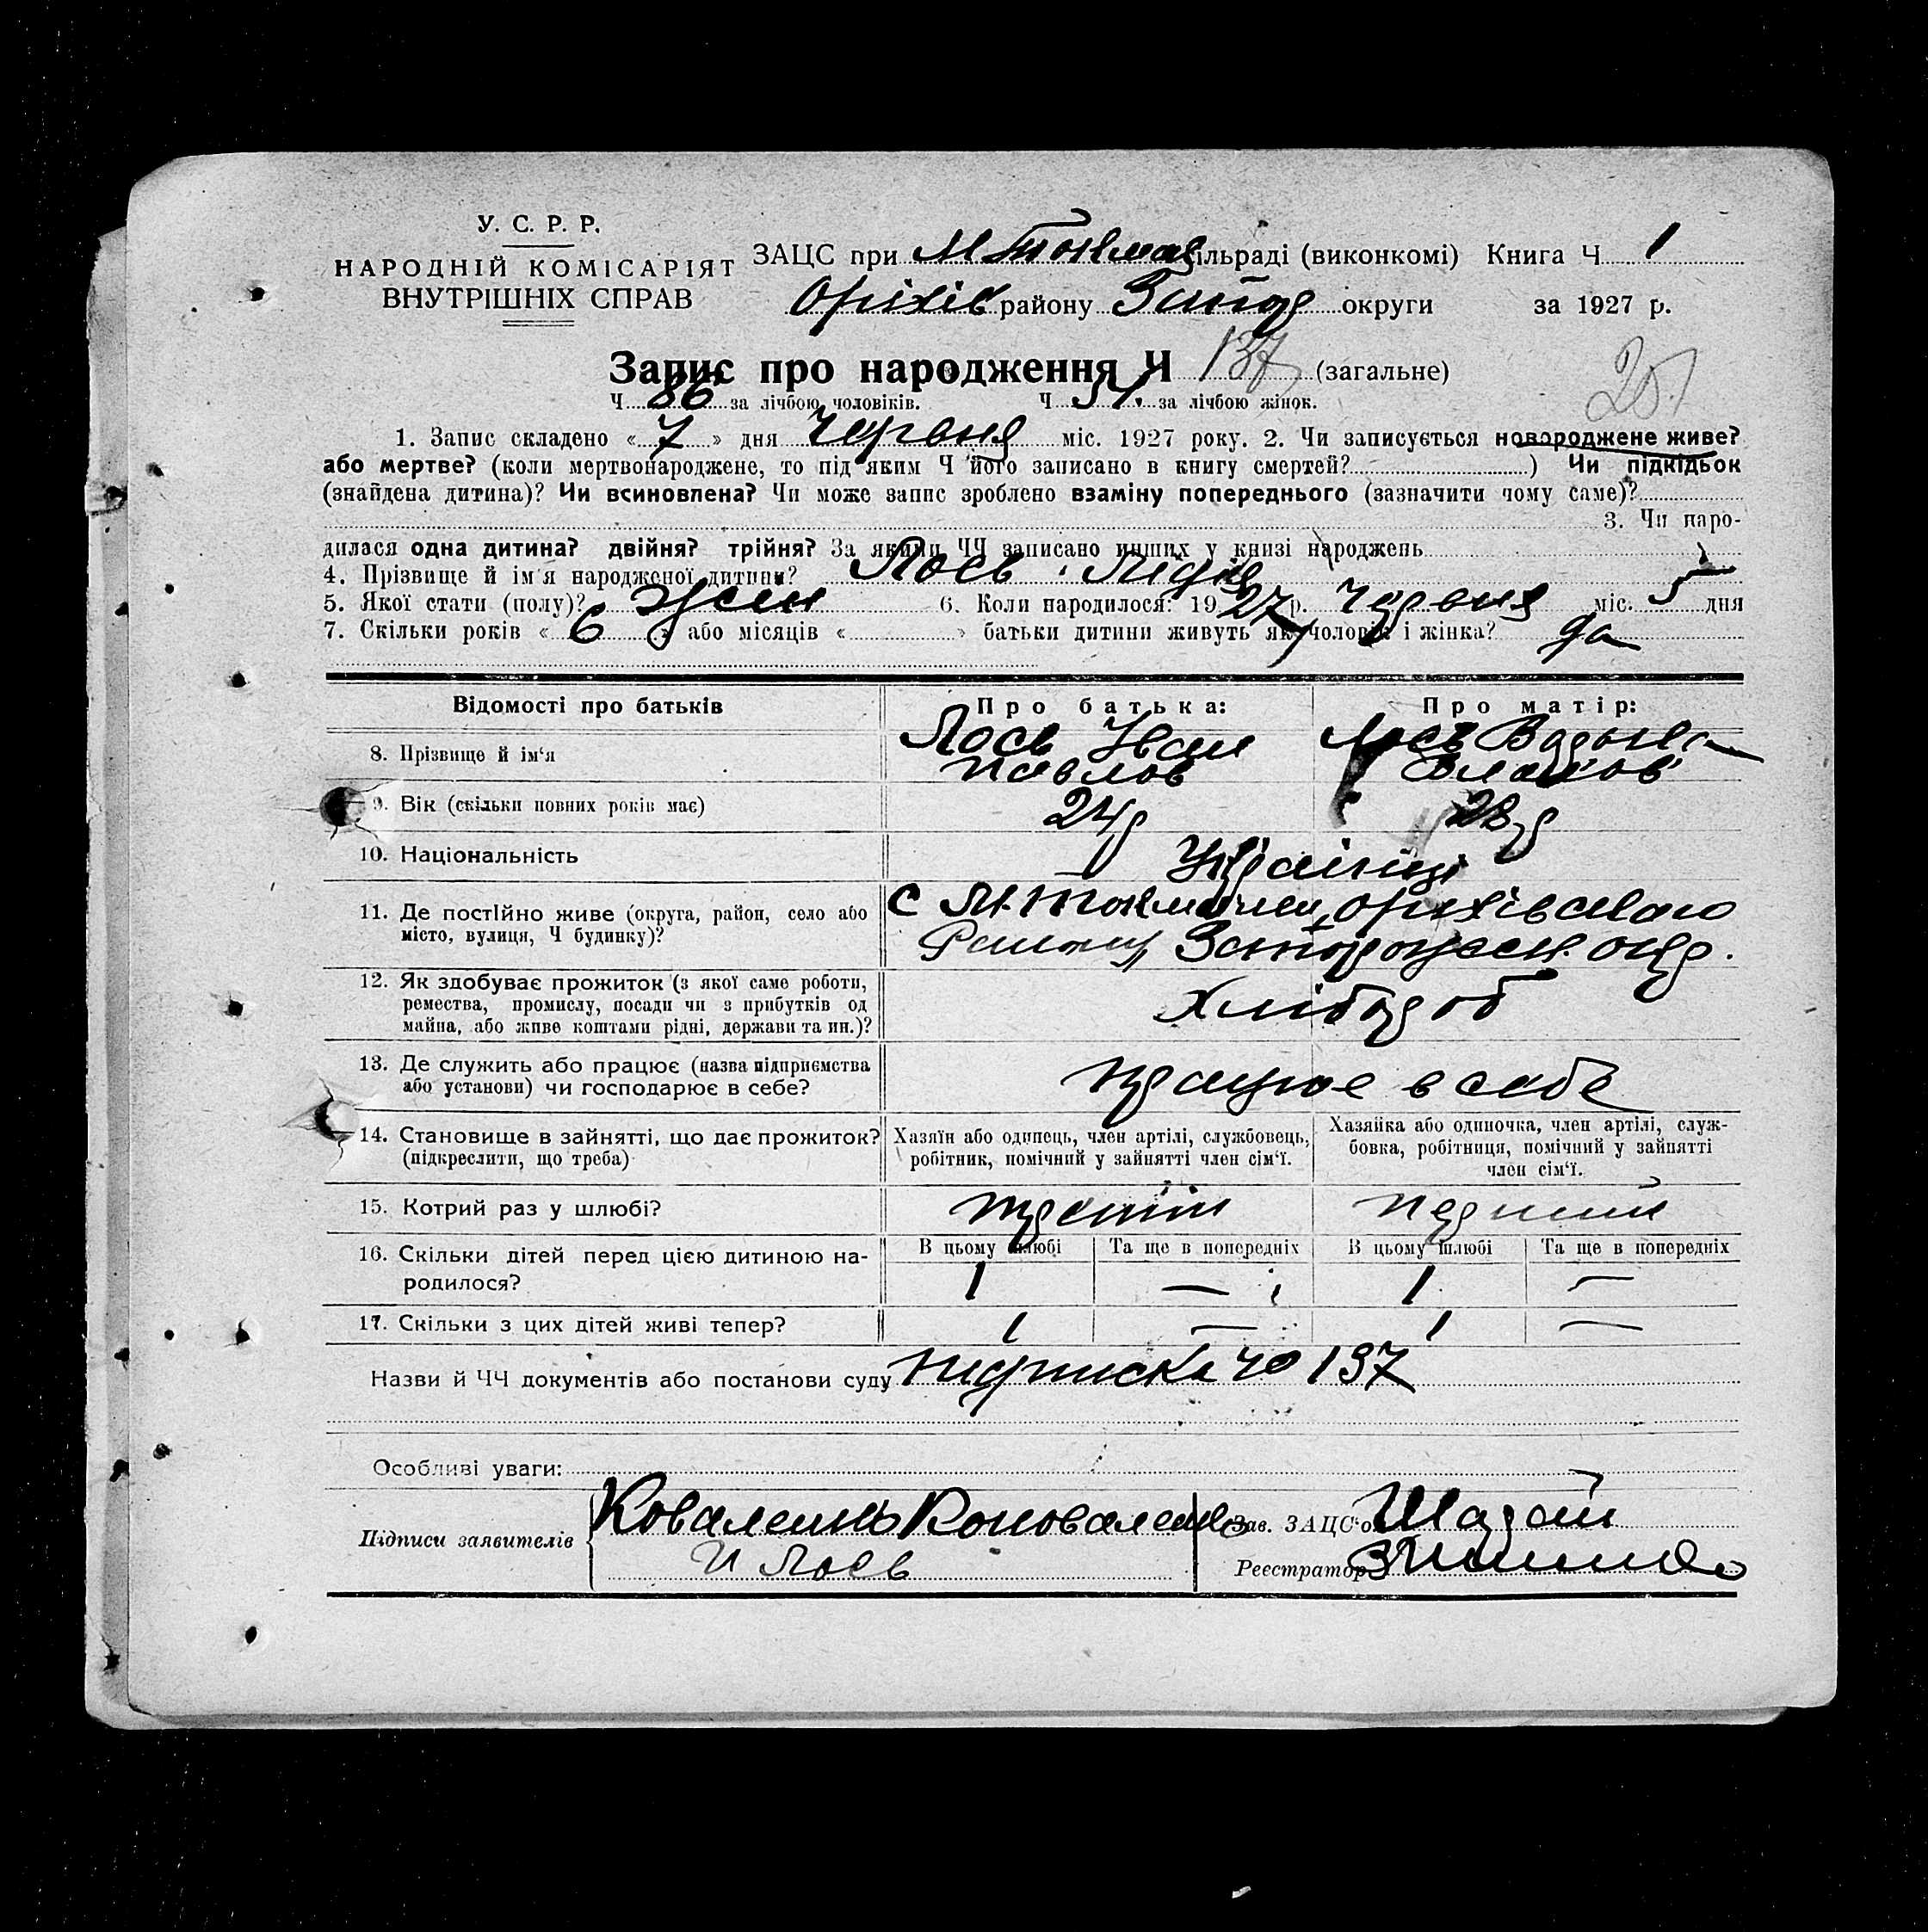 У. С. Р. Р.
НАРОДНІЙ КОМІСАРІЯТ
ВНУТРІШНІХ СПРАВ
ЗАЦС при М Токмац ільраді (виконкомі) Книга Ч 1
Оріхів району Запор округи за 1927 р.
Запис про народження Ч 137 (загальне)
Ч 86 за лічбою чоловіків. Ч 51. за лічбою жінок.
1. Запис складено « 7 » дня Червня міс. 1927 року. 2. Чи записується новороджене живе?
або мертве? (коли мертвонароджене, то під яким Ч його записано в книгу смертей? ) Чи підкідьок
(знайдена дитина)? Чи всиновлена? Чи може запис зроблено взаміну попереднього (зазначити чому саме)?
3. Чи наро-
дилася одна дитина? двійня? трійня? За якими ЧЧ записано инших у книзі народжень
4. Прізвище й ім'я народженої дитини? Лось Лідія
5. Якої стати (полу)? жен 6. Коли народилося: 1927 р. Червня міс. 5 дня
7. Скільки років « 6 » або місяців « » батьки дитини живуть як чоловік і жінка? да
Відомості про батьків Про батька: Про матір:
8. Прізвище й ім‘я Лось Іван Лось
Павлов
9. Вік (скільки повних років має) 24р 28р
10. Національність Україпці
11. Де постійно живе (округа, район, село або
місто, вулиця, Ч будинку)? С М. Оріхівського
Запорожськ. окр.
12. Як здобуває прожиток (з якої саме роботи,
ремества, промислу, посади чи з прибутків од
майна, або живе коштами рідні, держави та ин.)? Хлібороб
13. Де служить або працює (назва підприємства
або установи) чи господарює в себе? працює в себе
14. Становище в зайнятті, що дає прожиток?
(підкреслити, що треба)
Хазяїн або одинець, член артілі, службовець,
робітник, помічний у зайнятті член сім‘ї.
Хазяйка або одиночка, член артілі, служ-
бовка, робітниця, помічний у зайнятті
член сім‘ї.
15. Котрий раз у шлюбі? перший
16. Скільки дітей перед цією дитиною на-
родилося?
В цьому шлюбі Та ще в попередніх В цьому шлюбі Та ще в попередніх
1 — 1 —
17. Скільки з цих дітей живі тепер? 1 — 1 —
Назви й ЧЧ документів або постанови суду Підписка 137
Особливі уваги:
Підписи заявителів Коваленко Коноваленко
И Лось
Зав. ЗАЦС'ом
Реєстратор